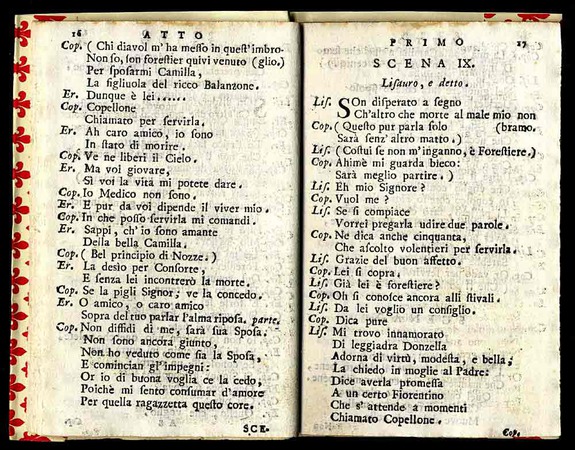 16 ATTO
Cop. ( Chi diavol m' ha messo in quest' imbro-
Non so, son forestier quivi venuto (glio.)
Per sposarmi Camilla,
La figliuola del ricco Balanzone.
Er. Dunque è lei......
Cop. Copellone
Chiamato per servirla.
Er. Ah caro amico, io sono
In stato di morire.
Cop. Ve ne liberi il Cielo.
Er. Ma voi giovare,
Sì voi la vita mi potete dare.
Cop. Io Medico non sono.
Er. E pur da voi dipende il viver mio.
Cop. In che posso servirla mi comandi.
Er. Sappi, ch' io sono amante
Della bella Camilla.
Cop. ( Bel principio di Nozze. )
Er. La desìo per Consorte,
E senza lei incontrerò la morte.
Cop. Se la pigli Signor; ve la concedo.
Er. O amico, o caro amico
Sopra del tuo parlar l'alma riposa. parte.
Cop. Non diffidi di me, sarà sua Sposa.
Non sono ancora giunto,
Non ho veduto come sia la Sposa,
E comincian gl' impegni:
Or io di buona voglia ce la cedo,
Poichè mi sento consumar d'amore
Per quella ragazzetta questo core.
SCE-
PRIMO 17
SCENA IX.
Lisauro, e detto.
Lis. SOn disperato a segno
Ch'altro che morte al male mio non
Cop. ( Questo pur parla solo (bramo.
Sarà senz' altro matto. )
Lis. ( Costui se non m'inganno, è Forestiere.)
Cop. Ahimè mi guarda bieco:
Sarà meglio partire. )
Lis. Eh mio Signore ?
Cop. Vuol me ?
Lis. Se si compiace
Vorrei pregarla udire due parole.
Cop. Ne dica anche cinquanta,
Che ascolto volentieri per servirla.
Lis. Grazie del buon affetto.
Cop. Lei si copra.
Lis. Già lei è forestiere ?
Cop. Oh si conosce ancora alli stivali.
Lis. Da lei voglio un consiglio.
Cop. Dica pure
Lis. Mi trovo innamorato
Di leggiadra Donzella
Adorna di virtù, modesta, e bella;
La chiedo in moglie al Padre:
Dice averla promessa
A un certo Fiorentino
Che s' attende a momenti
Chiamato Copellone.
Cop.